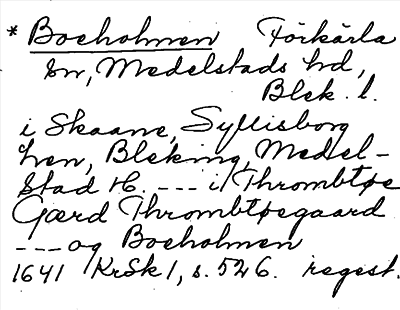 * Boeholmen Förkärla
sn, Medelstads hd,
Blek. l.
i Skaane, Syllisborg
Len, Bleking, Medel-
stad H. --- i Thrombtøe
Gærd Thrombtøegaard
--- og Boeholmen
1641 KrSk 1, s. 526. regest.